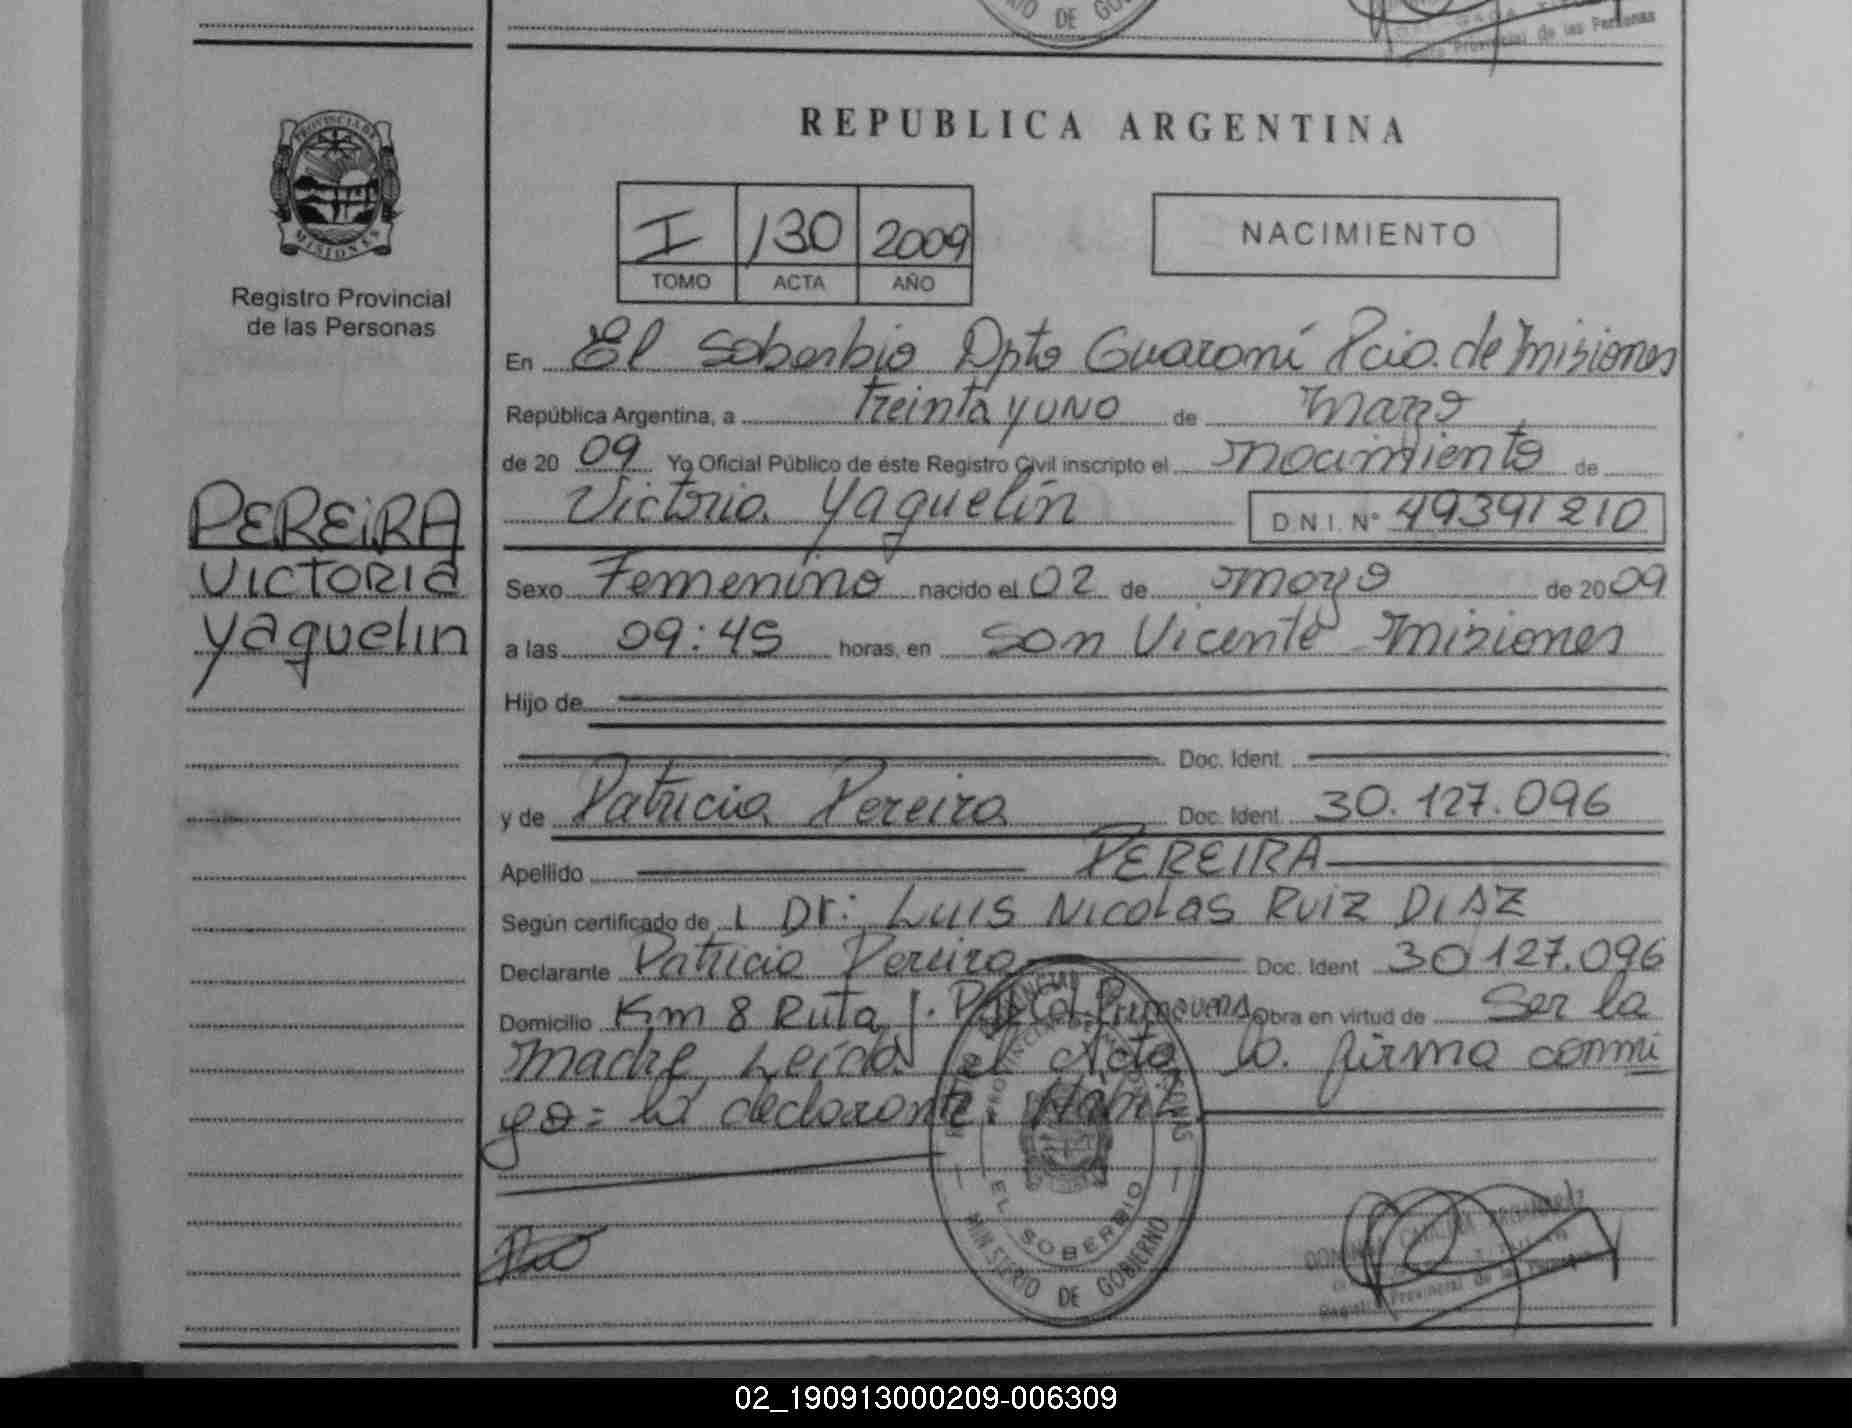 RIO DE GO
Provincial de las Personas
PROVINCIA DE
MISIONES
Registro Provincial
de las Personas
REPUBLICA ARGENTINA
I 130 2009
TOMO ACTA AÑO
NACIMIENTO
En El Soberbio Dpto Guaraní Pcia. de Misiones
República Argentina, a treinta y uno de Marzo
de 20 09 Yo Oficial Público de éste Registro Civil inscripto el nacimiento de
Victoria Yaquelin D.N.I. Nº 49391210
PEREIRA
VICTORIA
Yaquelin
Sexo Femenino nacido el 02 de mayo de 20 09
a las 09:45 horas, en San Vicente Misiones
Hijo de
Doc. Ident.
y de Patricia Pereira Doc. Ident. 30.127.096
Apellido PEREIRA
Según certificado de Dr: Luis Nicolas Ruiz Diaz
Declarante Patricia Pereira Doc. Ident 30 127.096
Domicilio Km 8 Ruta Col. Primavera Obra en virtud de Ser la
madre Leída el Acta la firma conmi
go = la declarante.
EL SOBERBIO
MINISTERIO DE GOBIERNO
Registro Provincial de las Personas
02_190913000209-006309